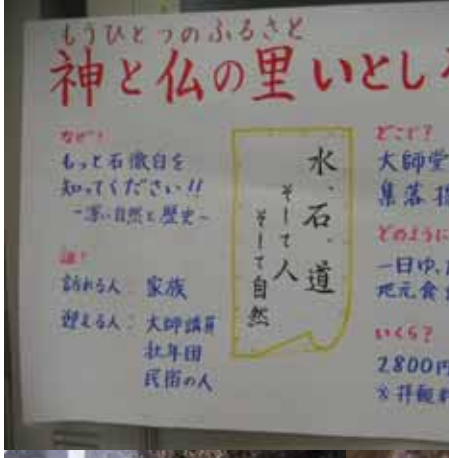 もうひとつのふるさと
神と仏の里いとしろ
なぜ?
もっと石徹白を
知ってください!!
誰?
訪れる人: 家族
迎える人: 大師講員
壮年団
民宿の人
水、石、道
そして人
そして自然
どこで?
大師堂
集落
どのように
一日ゆ、
地元食
いくら?
2800円
※拝観料